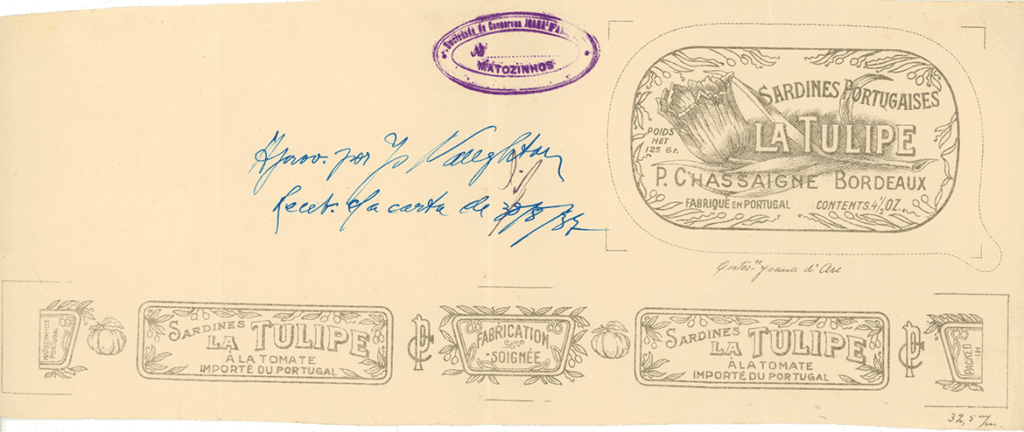 Sociedade de Conservas JOANA D'ARC
MATOZINHOS
SARDINES PORTUGAISES
LA TULIPE
POIDS
NET
125 Gr.
P. CHASSAIGNE BORDEAUX
FABRIQUÉ EN PORTUGAL CONTENTS. 4½ OZ.
Aprov. por
Receb. c/a carta de
Joana d'Arc
MATOZINHOS
PORTUGAL
SARDINES
LA TULIPE
À LA TOMATE
IMPORTÉ DU PORTUGAL
PC
FABRICATION
SOIGNÉE
SARDINES
LA TULIPE
À LA TOMATE
IMPORTÉ DU PORTUGAL
PC
PACKED
IN
32,5 m/m.